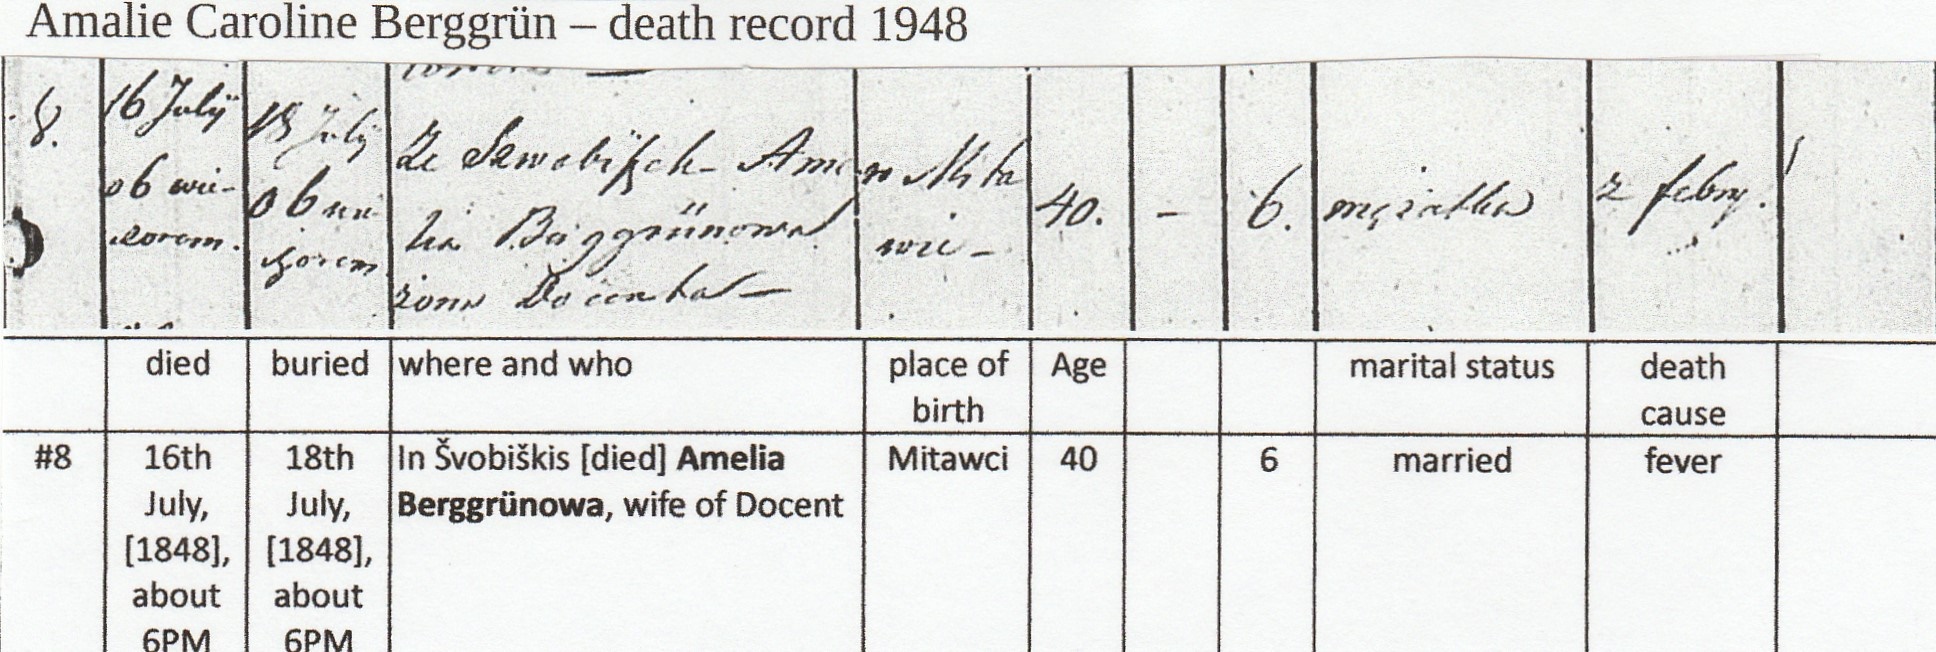 Amalie Caroline Berggrün – death record 1948
8.
16 Julÿ
o 6 wie-
czorem.
18 Julÿ
o 6 wie-
czorem
Ze Szwobiszek- Ame-
lia Berggrünowa
żona Docenta —
w Mita
wie -
40.
-
6.
mężatka
z febry.
died
buried
where and who
place of
birth
Age
marital status
death
cause
#8
16th
July,
[1848],
about
6PM
18th
July,
[1848],
about
6PM
In Švobiškis [died] Amelia
Berggrünowa, wife of Docent
Mitawci
40
6
married
fever